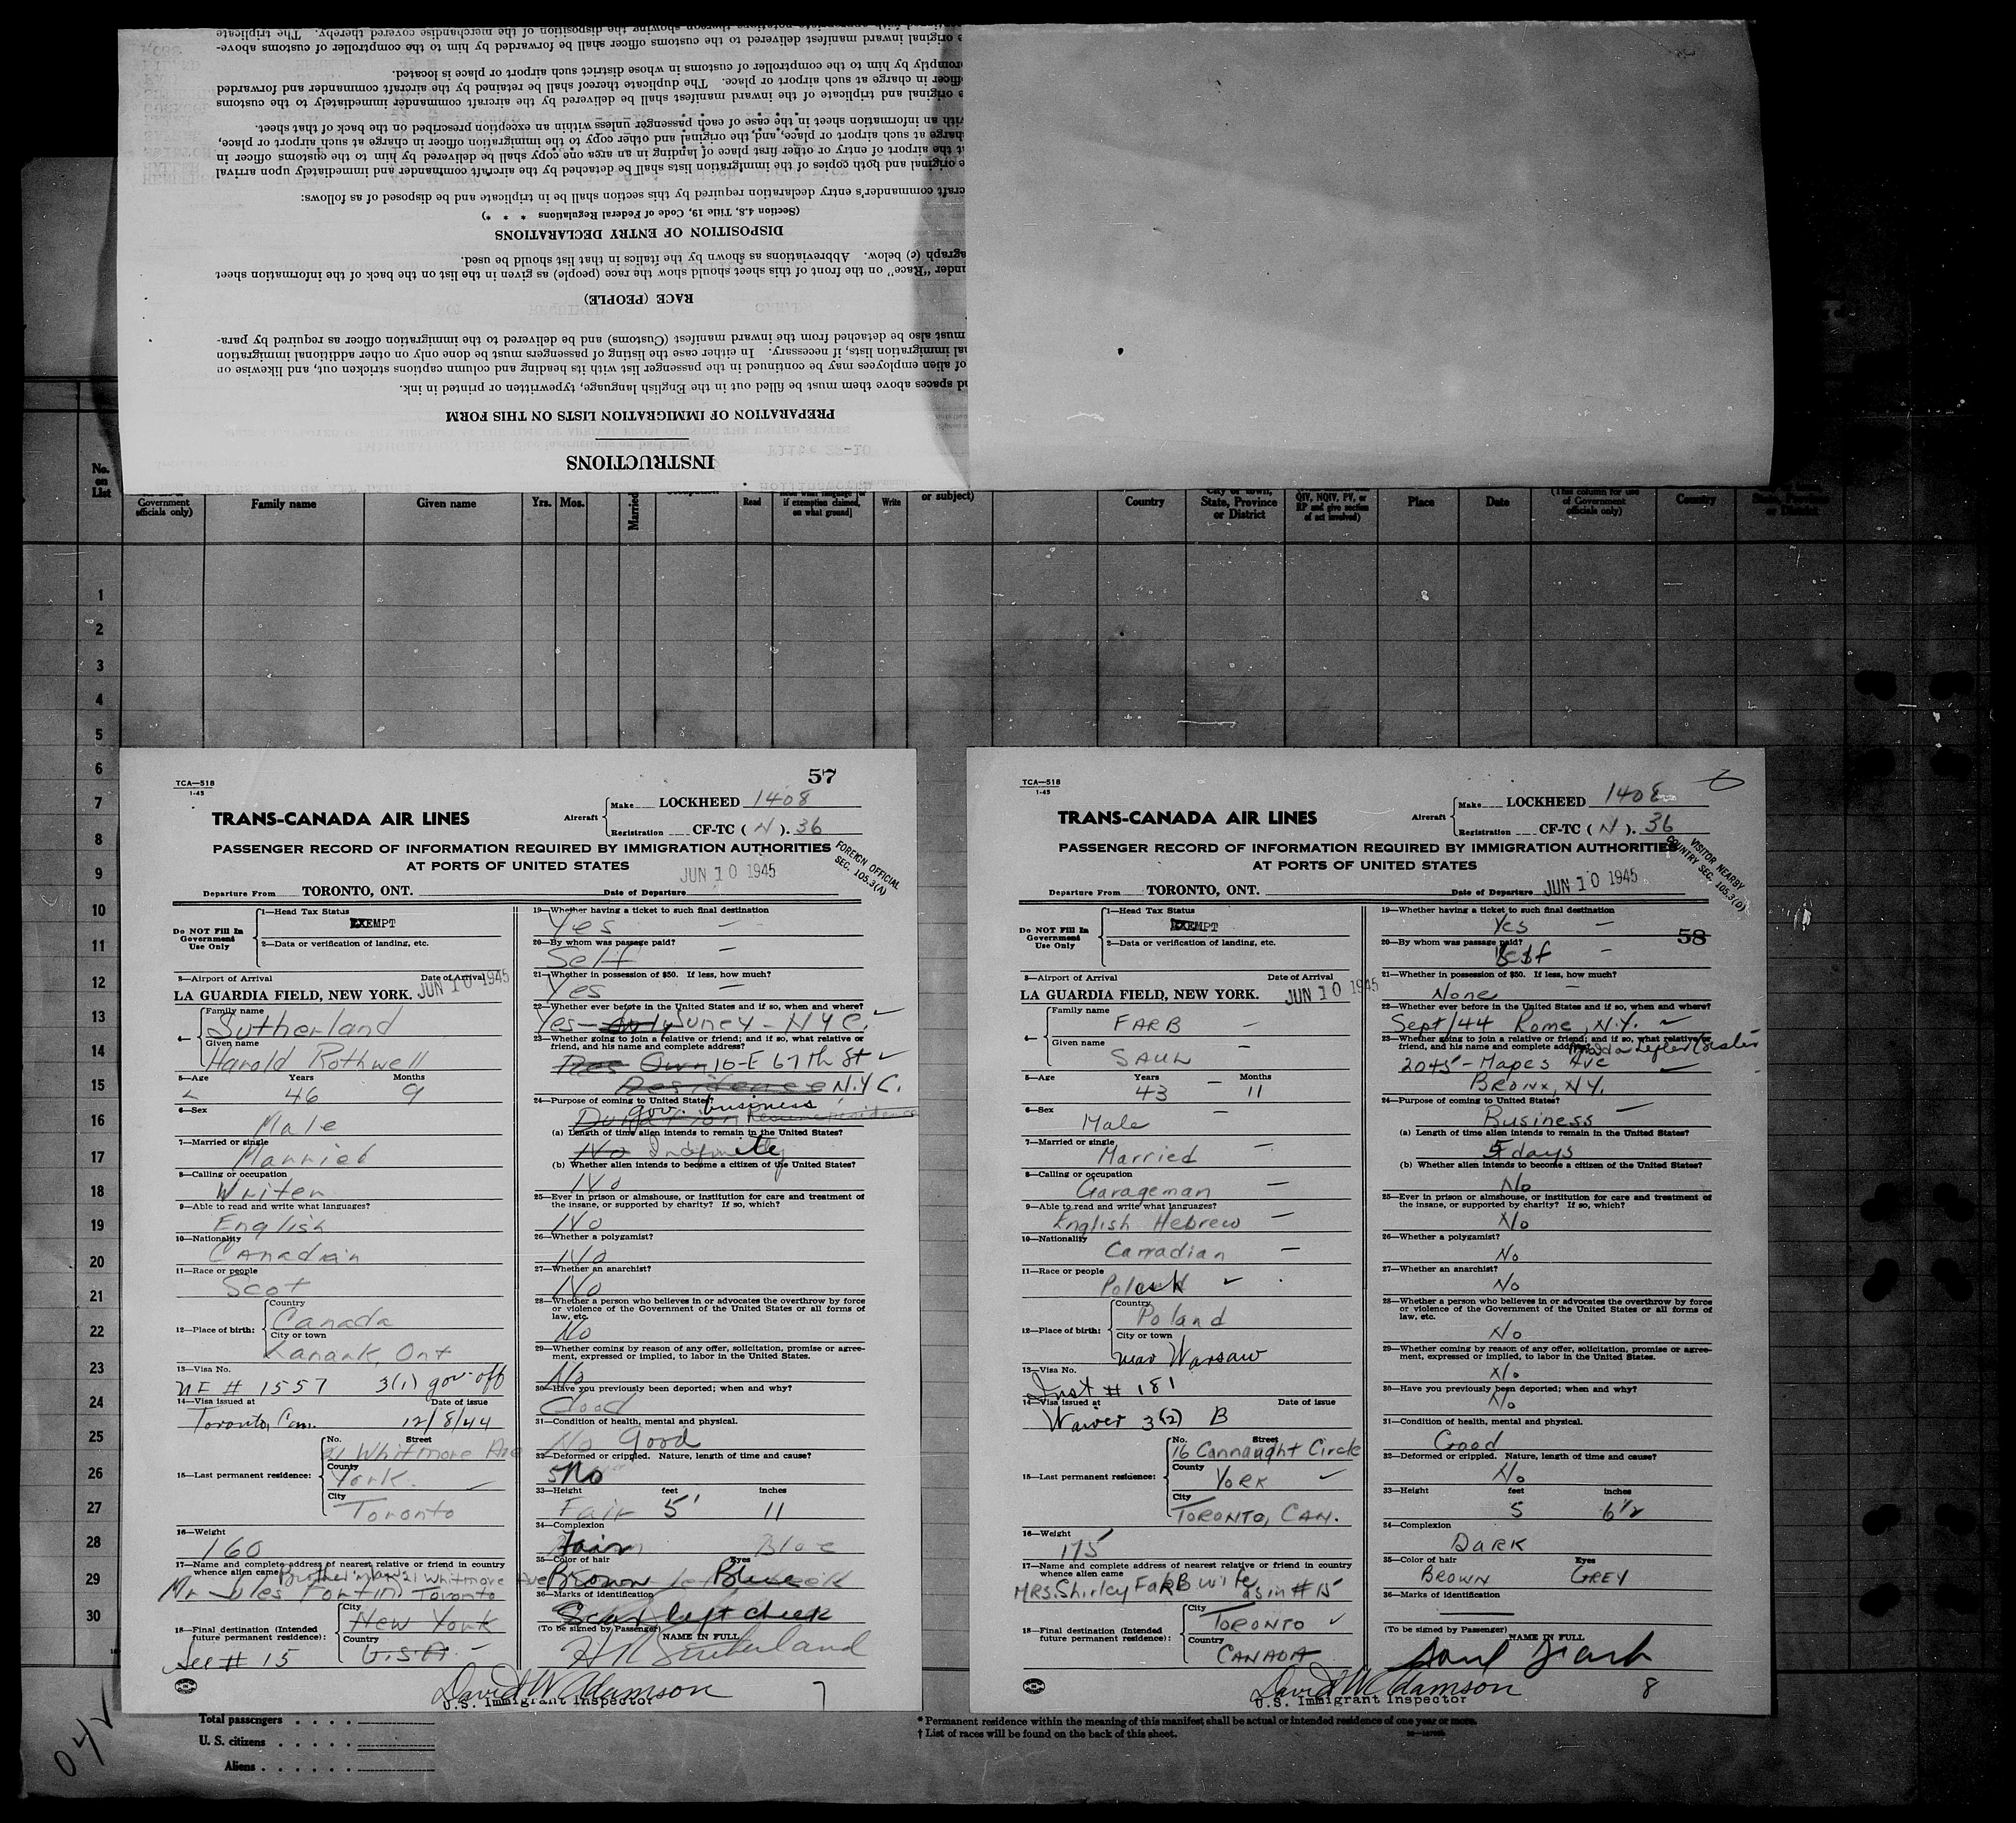 INSTRUCTIONS
PREPARATION OF IMMIGRATION LISTS ON THIS FORM
nd spaces above them must be filled out in the English language, typewritten or printed in ink.
of alien employees may be continued in the passenger list with its heading and column captions stricken out, and likewise on
al immigration lists, if necessary. In either case the listing of passengers must be done only on other additional immigration
must also be detached from the inward manifest (Customs) and be delivered to the immigration officer as required by para-
RACE (PEOPLE)
nder "Race" on the front of this sheet should show the race (people) as given in the list on the back of the information sheet
agraph (c) below. Abbreviations as shown by the italics in that list should be used.
DISPOSITION OF ENTRY DECLARATIONS
(Section 4.8, Title 19, Code of Federal Regulations * * *)
craft commander's entry declaration required by this section shall be in triplicate and be disposed of as follows:
e original and both copies of the immigration lists shall be detached by the aircraft commander and immediately upon arrival
at the airport of entry or other first place of landing in an area one copy shall be delivered by him to the customs officer in
charge at such airport or place, and the original and other copy to the immigration officer in charge at such airport or place,
with an information sheet in the case of each passenger unless within an exception prescribed on the back of that sheet.
e original and triplicate of the inward manifest shall be delivered by the aircraft commander immediately to the customs
officer in charge at such airport or place. The duplicate thereof shall be retained by the aircraft commander and forwarded
promptly by him to the comptroller of customs in whose district such airport or place is located.
e original inward manifest delivered to the customs officer shall be forwarded by him to the comptroller of customs above-
thereon showing the disposition of the merchandise covered thereby. The triplicate
No. on List
Government officials only)
Family name
Given name
Yrs.
Mos.
Married
Read
if exemption claimed, on what ground]
Write
or subject)
Country
City or town, State, Province or District
QIV, NQIV, PV, or RP and give section of act involved)
Place
Date
(This column for use of Government officials only)
Country
State, Province or District
1
2
3
4
5
6
7
8
9
10
11
12
13
14
15
16
17
18
19
20
21
22
23
24
25
26
27
28
29
30
TCA—518
1-45
57
TRANS-CANADA AIR LINES
Aircraft
Make LOCKHEED 1408
Registration CF-TC ( N ). 36
PASSENGER RECORD OF INFORMATION REQUIRED BY IMMIGRATION AUTHORITIES
AT PORTS OF UNITED STATES
FOREIGN OFFICIAL
SEC. 105.3(A)
Departure From TORONTO, ONT.
Date of Departure JUN 10 1945
Do NOT Fill In Government Use Only
1—Head Tax Status
EXEMPT
2—Data or verification of landing, etc.
3—Airport of Arrival
Date of Arrival
LA GUARDIA FIELD, NEW YORK. JUN 10 1945
4— Family name
Sutherland
Given name
Harold Rothwell
5—Age Years Months
46 9
6—Sex
Male
7—Married or single
Married
8—Calling or occupation
Writer
9—Able to read and write what languages?
English
10—Nationality
Canadian
11—Race or people
Scot
12—Place of birth:
Country
Canada
City or town
Lanark, Ont
13—Visa No.
NI # 1557 3(1) gov. off
14—Visa issued at Date of issue
Toronto, Can. 12/8/44
15—Last permanent residence:
No. Street
21 Whitmore Ave
County
York
City
Toronto
16—Weight
160
17—Name and complete address of nearest relative or friend in country
whence alien came
21 Whitmore Ave
Toronto
18—Final destination (Intended future permanent residence):
City
New York
Country
U.S.A.
See # 15
19—Whether having a ticket to such final destination
Yes
20—By whom was passage paid?
Self
21—Whether in possession of $50. If less, how much?
Yes
22—Whether ever before in the United States and if so, when and where?
Yes – June 4 – NYC.
23—Whether going to join a relative or friend; and if so, what relative or
friend, and his name and complete address?
Own 10-E 67th St
Residence N.Y.C.
24—Purpose of coming to United States?
gov. business
(a) Length of time alien intends to remain in the United States?
No Indefinitely
(b) Whether alien intends to become a citizen of the United States?
No
25—Ever in prison or almshouse, or institution for care and treatment of
the insane, or supported by charity? If so, which?
No
26—Whether a polygamist?
No
27—Whether an anarchist?
No
28—Whether a person who believes in or advocates the overthrow by force
or violence of the Government of the United States or all forms of
law, etc.
No
29—Whether coming by reason of any offer, solicitation, promise or agree-
ment, expressed or implied, to labor in the United States.
No
30—Have you previously been deported; when and why?
Good
31—Condition of health, mental and physical.
No Good
32—Deformed or crippled. Nature, length of time and cause?
No
33—Height feet inches
Fair 5' 11
34—Complexion
Fair Blue
35—Color of hair Eyes
Brown Blue
36—Marks of identification
Scar left cheek
(To be signed by Passenger)
NAME IN FULL
H R Sutherland
David W Adamson
U.S. Immigrant Inspector
7
TCA—518
1-45
TRANS-CANADA AIR LINES
Aircraft
Make LOCKHEED 1408
Registration CF-TC ( N ). 36
PASSENGER RECORD OF INFORMATION REQUIRED BY IMMIGRATION AUTHORITIES
AT PORTS OF UNITED STATES
VISITOR NEARBY
COUNTRY SEC. 105.3(D)
Departure From TORONTO, ONT.
Date of Departure JUN 10 1945
Do NOT Fill In Government Use Only
1—Head Tax Status
EXEMPT
2—Data or verification of landing, etc.
3—Airport of Arrival
Date of Arrival
LA GUARDIA FIELD, NEW YORK. JUN 10 1945
4— Family name
FARB
Given name
SAUL
5—Age Years Months
43 11
6—Sex
Male
7—Married or single
Married
8—Calling or occupation
Garageman
9—Able to read and write what languages?
English Hebrew
10—Nationality
Canadian
11—Race or people
12—Place of birth:
Country
Poland
City or town
near Warsaw
13—Visa No.
Inst # 181
14—Visa issued at Date of issue
Waiver 3(2) B
15—Last permanent residence:
No. Street
16 Cannaught Circle
County
YORK
City
TORONTO, CAN.
16—Weight
175
17—Name and complete address of nearest relative or friend in country
whence alien came
MRS. Shirley FARB wife as in # 15
18—Final destination (Intended future permanent residence):
City
TORONTO
Country
CANADA
19—Whether having a ticket to such final destination
Yes
58
20—By whom was passage paid?
Self
21—Whether in possession of $50. If less, how much?
None
22—Whether ever before in the United States and if so, when and where?
Sept/44 Rome, N.Y.
23—Whether going to join a relative or friend; and if so, what relative or
friend, and his name and complete address?
2045 – Mapes Ave
BRONX, N.Y.
24—Purpose of coming to United States?
Business
(a) Length of time alien intends to remain in the United States?
5 days
(b) Whether alien intends to become a citizen of the United States?
No
25—Ever in prison or almshouse, or institution for care and treatment of
the insane, or supported by charity? If so, which?
No
26—Whether a polygamist?
No
27—Whether an anarchist?
No
28—Whether a person who believes in or advocates the overthrow by force
or violence of the Government of the United States or all forms of
law, etc.
No
29—Whether coming by reason of any offer, solicitation, promise or agree-
ment, expressed or implied, to labor in the United States.
No
30—Have you previously been deported; when and why?
No
31—Condition of health, mental and physical.
Good
32—Deformed or crippled. Nature, length of time and cause?
No
33—Height feet inches
5 6½
34—Complexion
DARK
35—Color of hair Eyes
BROWN GREY
36—Marks of identification
(To be signed by Passenger)
NAME IN FULL
Saul Farb
David W Adamson
U.S. Immigrant Inspector
8
Total passengers
U. S. citizens
Aliens
* Permanent residence within the meaning of this manifest shall be actual or intended residence of one year or more.
† List of races will be found on the back of this sheet.